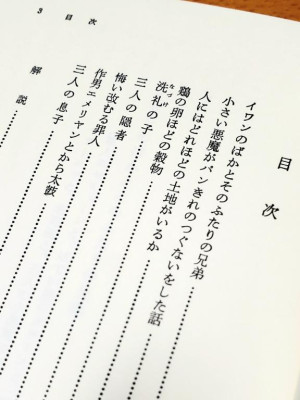 3 目次
目次
イワンのばかとそのふたりの兄弟
小さい悪魔がパンきれのつぐないをした話
人にはどれほどの土地がいるか
鶏の卵ほどの穀物
洗礼の子
なづけ
三人の隠者
悔い改むる罪人
作男エメリヤンとから太鼓
三人の息子
解説